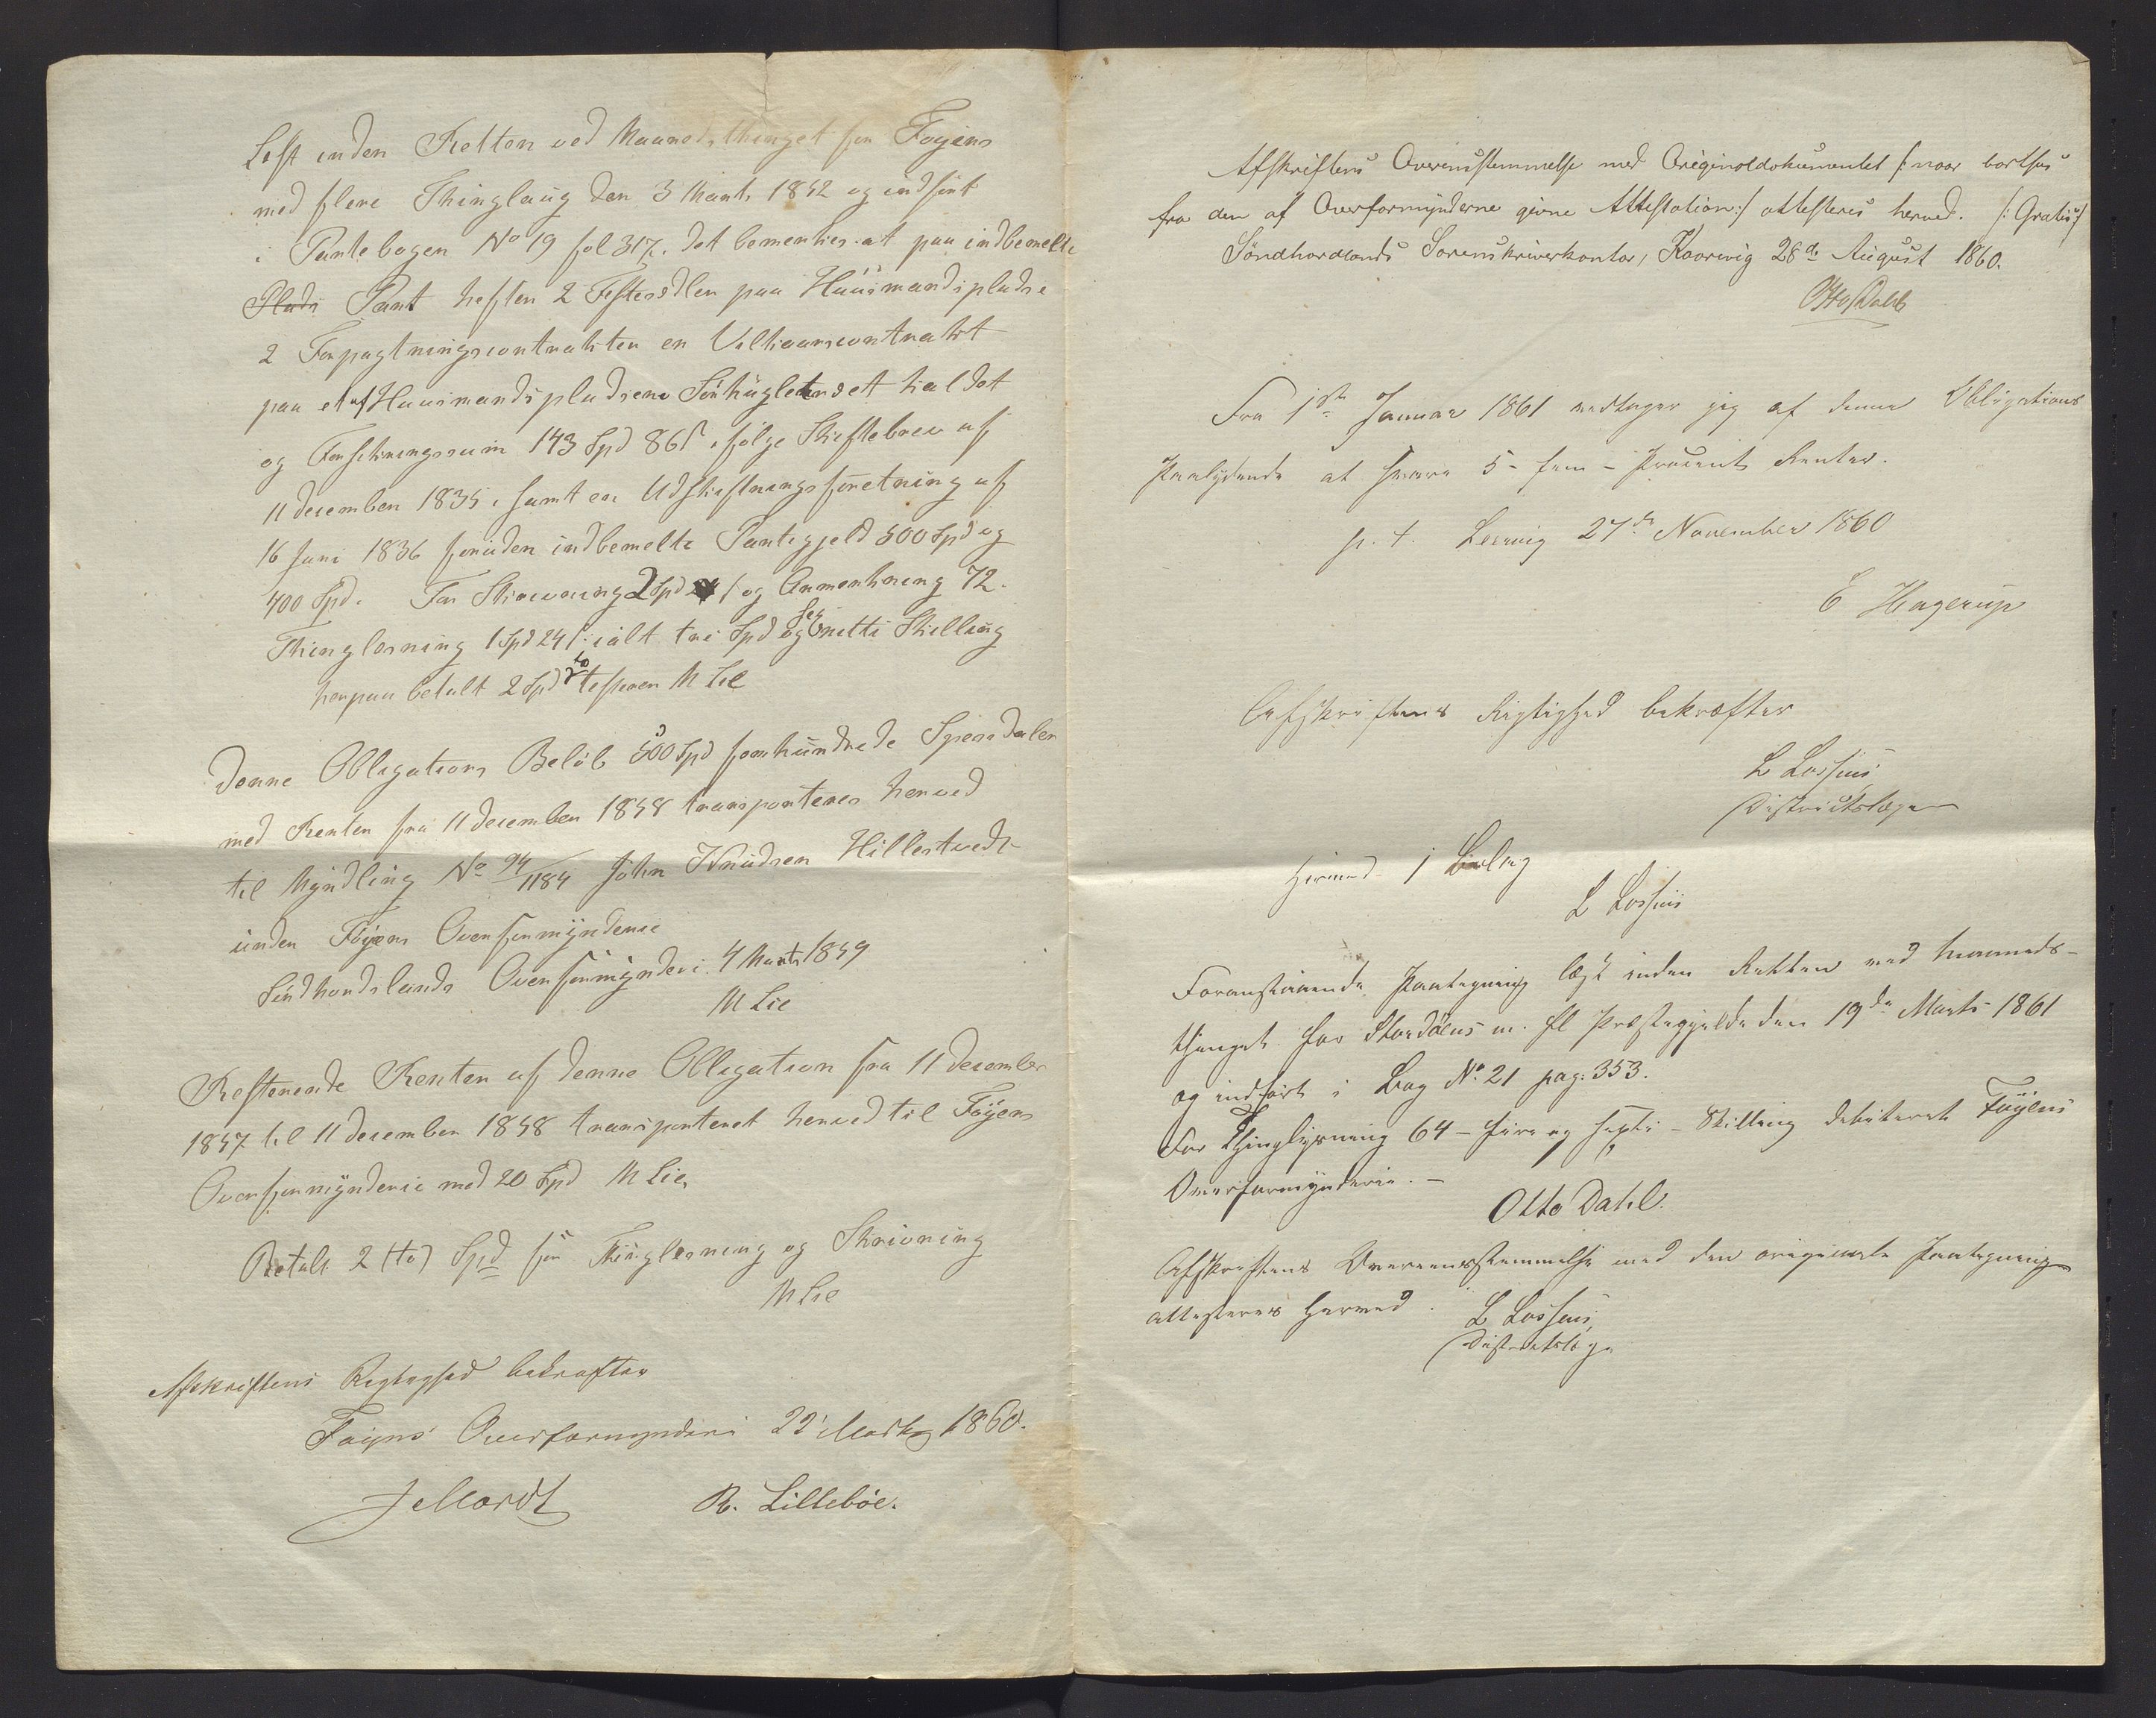 Lest inden Retten ved Maanedsthinget for Føyens
med flere Thinglaug den 3 Marts 1852 og indført
i Pantebogen No 19 fol 317. det bemerkes at paa indbemelte
Plads Pant heften 2 Festersedlen paa Huusmandspladse
2 Forpagtningscontrakter en Vilkaarscontrakt
paa et af Huusmandspladsene kaldet
og Forsikringssum 143 Spd 86 s ifølge Skiftebrev af
11 December 1835, samt en Udskiftningsforretning af
16 Juni 1836 foruden indbemelte Pantegjeld 500 Spd og
400 Spd. For Skrivning 2 Spd og Anmerkning 72.
Thinglesning 1 Spd 24 s ialt tre Spd og Skilling
herpaa betalt 2 Spd to M Lie
Denne Obligations Beløb 500 Spd femhundrede Speciedaler
med Renter fra 11 December 1858 transporteres herved
til Myndling No 94/1184 John Knudsen Hillestvedt
under Føyens Overformynderie
Søndhordslands Overformynderi 4 Marts 1859
M Lie
Resterende Renter af denne Obligation fra 11 December
1857 til 11 December 1858 transporteret herved til Føyens
Overformynderie med 20 Spd M Lie
Betalt 2 (to) Spd for Thinglesning og Skrivning
M Lie
Afskriftens Rigtighed bekræfter
Føyns Overformynderi 22 Marts 1860.
R. Lillebøe.
Afskriftens Overeensstemmelse med Originaldokumentet /: naar bortsees
fra den af Overformynderne givne Attestation :/ attesteres herved. /: Gratis :/
Söndhordlands Sorenskriverkontor, Kaarevig 28de August 1860.
Otto Dahl
Fra 1ste Januar 1861 vedtager jeg af denne Obligations
Paalydende at svare 5 - fem - Procent Renter.
p. t. Leervig 27de November 1860
E Hagerup
Afskriftens Rigtighed bekræfter
L Lossius
Districtslæge
Hermed 1 Bilag
L Lossius
Foranstaaende Paategning læst inden Retten ved Maaneds-
thinget for Stordøens m. fl Præstegjelde den 19de Marts 1861
og indført i Bog No. 21 pag: 353.
For Thinglysning 64 - fire og sexti - Skilling debiteret Føyens
Overformynderie. -
Otto Dahl.
Afskriftens Overeensstemmelse med den originale Paategning
attesteres herved. L Lossius,
Districtslæge